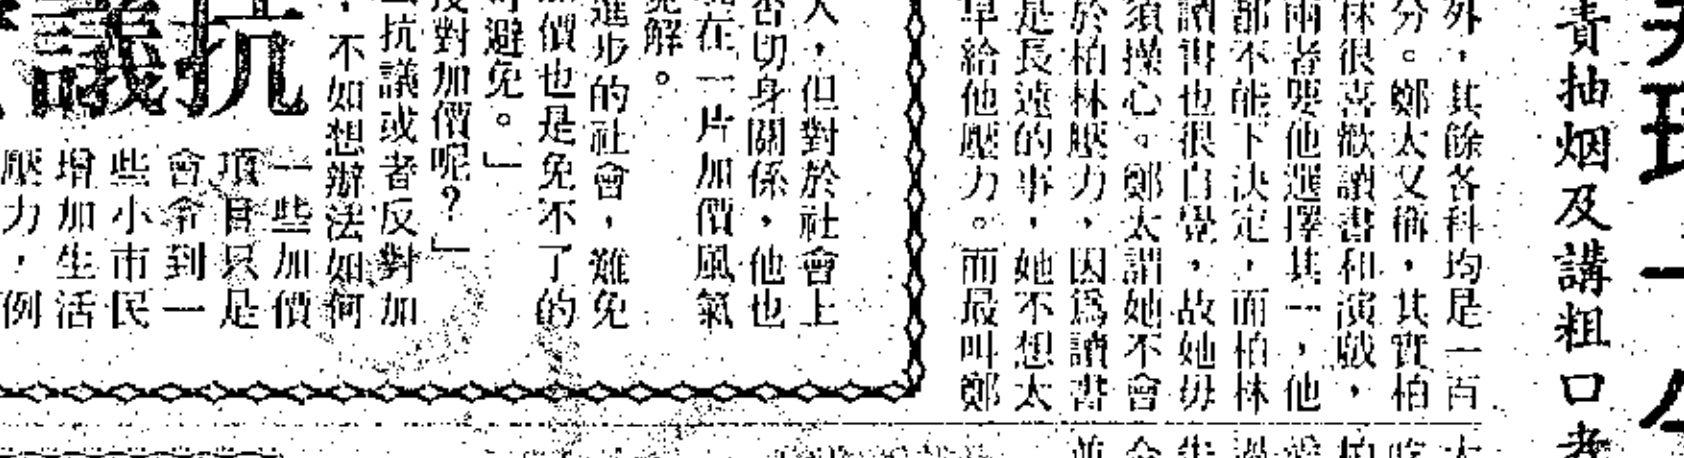 責抽烟及講粗口者
外，其餘各科均是一百
分。鄭太又稱，其實柏
林很喜歡讀書和演戲，
兩者要他選擇其一，他
都不能下决定，而柏林
讀書也很自覺，故她毋
須操心。鄭太謂她不會
於柏林壓力，因爲讀書
是長遠的事，她不想太
早給他壓力。而最叫鄭
人，但對於社會上
否切身關係，他也
在一片加價風氣
免解。
進步的社會，難免
價也是免不了的
避免。」
反對加價呢？」
抗議或者反對加
，不如想辦法如何
抗議
一些加價
項目只是
會令到一
些小市民
增加生活
壓力，例